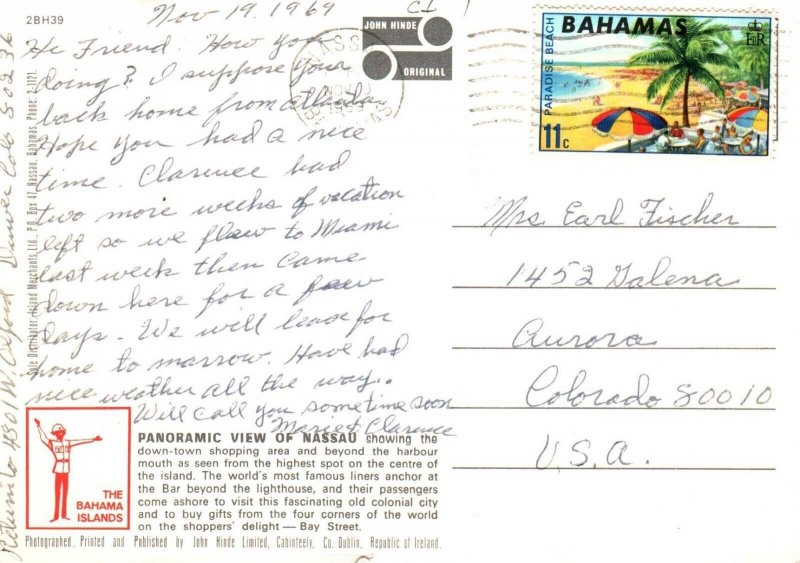 2BH39
Nov 19, 1969
C1
JOHN HINDE
ORIGINAL
BAHAMAS
PARADISE BEACH
E R
11c
NASSAU
BAHAMAS
Hi Friend. How you
doing? I suppose your
back home from
Hope you had a nice
time. Clarence had
two more weeks of vacation
left so we flew to Miami
last week then came
down here for a few
days. We will leave for
home to marrow. Have had
nice weather all the way..
Will call you sometime soon
Marie & Clarence
Mrs. Earl Fischer
1452 Galena
Aurora
Colorado 80010
U.S.A.
Return to 4301 W. Oxford Denver Colo 80236
Sole Distributor: Island Merchants Ltd., P.O. Box 47 Nassau, Bahamas. Phone: 2-1121
THE
BAHAMA
ISLANDS
PANORAMIC VIEW OF NASSAU showing the
down-town shopping area and beyond the harbour
mouth as seen from the highest spot on the centre of
the island. The world's most famous liners anchor at
the Bar beyond the lighthouse, and their passengers
come ashore to visit this fascinating old colonial city
and to buy gifts from the four corners of the world
on the shoppers' delight — Bay Street.
Photographed, Printed and Published by John Hinde Limited, Cabinteely, Co. Dublin, Republic of Ireland.